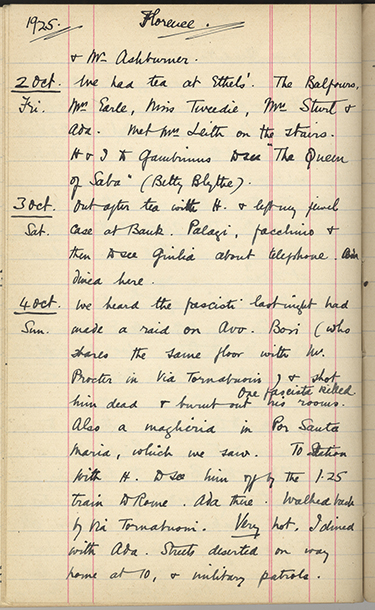 1925. Florence.
& Mr Ashburner.
2 Oct. We had tea at Ethels'. The Balfours,
Fri. Mrs Earle, Miss Tweedie, Mrs Sturt &
Ada. Met Mrs Leith on the stairs.
H & I to Gambrinus to see "The Queen
of Saba" (Betty Blythe).
3 Oct. Out after tea with H. & left my jewel
Sat. case at Bank. Palagi, facchino &
then to see Giulia about telephone.
dined here.
4 Oct. We heard the fascisti last night had
Sun. made a raid on Avv. (who
shares the same floor with Mr.
Procter in Via Tornabuoni) & shot
One fascista killed
him dead & burnt out his rooms.
Also a maglieria in Por Santa
Maria, which we saw. To Station
with H. to see him off by the 1.25
train to Rome. Ada there. Walked back
by Via Tornabuoni. Very hot. I dined
with Ada. Streets deserted on way
home at 10, & military patrols.